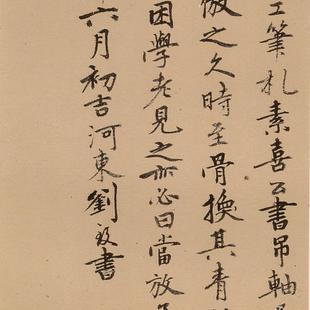 工筆札素喜公書吊軸
倣之久時至骨換其青
困學老見之亦必曰當放
六月初吉河東劉致書